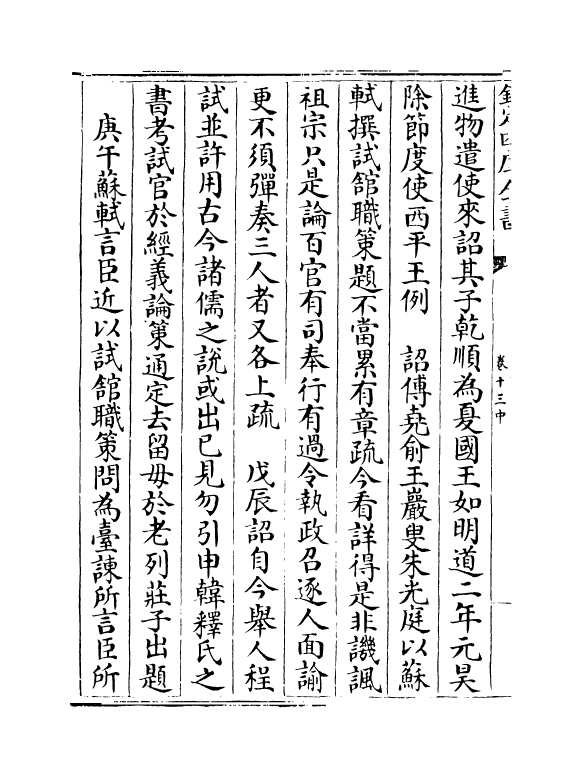 欽定四庫全書
卷十三中
進物遣使來詔其子乾順為夏國王如明道二年元昊
除節度使西平王例　詔傅堯俞王巖叟朱光庭以蘇
軾撰試館職策題不當累有章疏今看詳得是非譏諷
祖宗只是論百官有司奉行有過令執政召逐人面諭
更不須彈奏三人者又各上疏　戊辰詔自今舉人程
試並許用古今諸儒之說或出已見勿引申韓釋氏之
書考試官於經義論策通定去留毋於老列莊子出題
庚午蘇軾言臣近以試館職策問為臺諫所言臣所